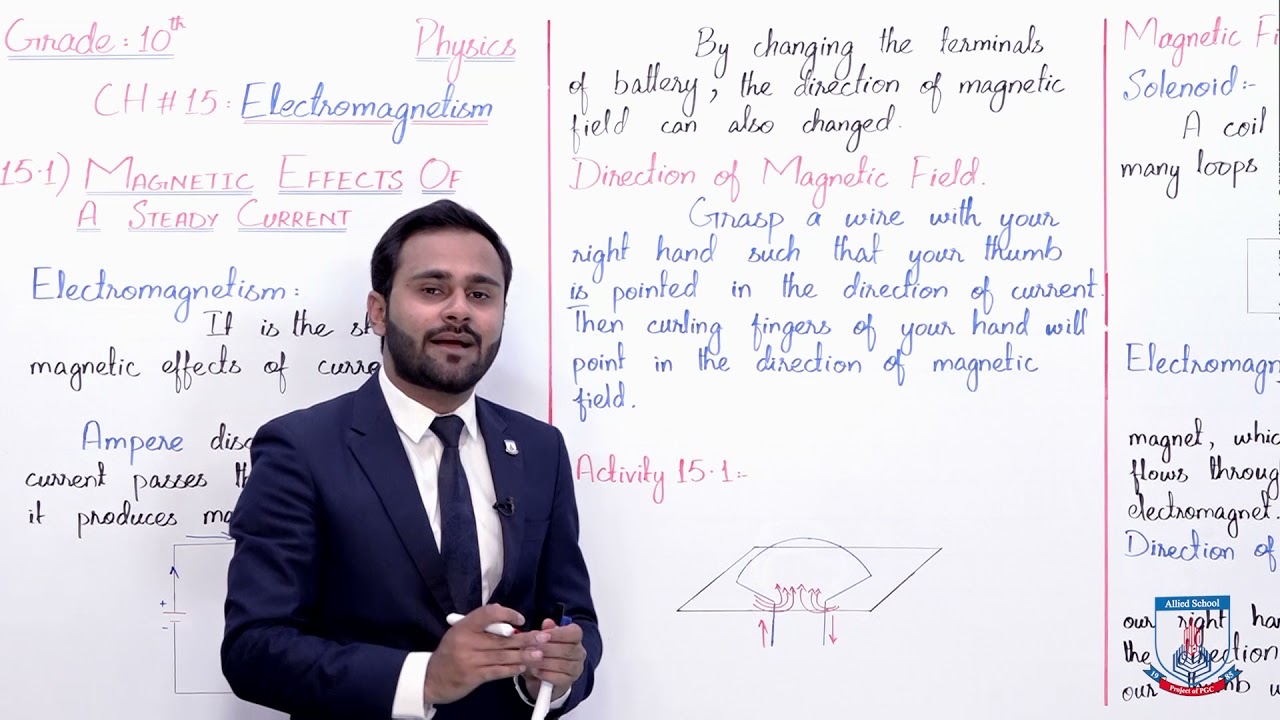 Grade: 10th
Physics
CH # 15: Electromagnetism
15.1) MAGNETIC EFFECTS OF
A STEADY CURRENT
Electromagnetism:
It is the
magnetic effects of
Ampere
current passes
it produces
+
-
By changing the terminals
of battery, the direction of magnetic
field can also changed.
Direction of Magnetic Field.
Grasp a wire with your
right hand such that your thumb
is pointed in the direction of current.
Then curling fingers of your hand will
point in the direction of magnetic
field.
Activity 15.1:-
Magnetic
Solenoid:-
A coil
many loops
magnet,
flows
electromagnet.
Direction of
our right
the
our
Allied School
19 85
Project of PGC